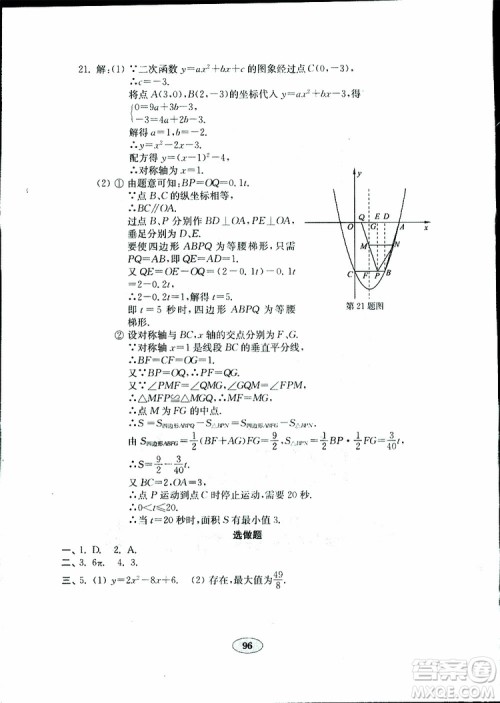 21. 解:(1) ∵二次函数 y=ax²+bx+c 的图象经过点 C(0,-3),
∴c=-3.
将点 A(3,0),B(2,-3)的坐标代入 y=ax²+bx+c 得
{0=9a+3b-3,
-3=4a+2b-3.
解得 a=1,b=-2.
∴y=x²-2x-3.
配方得 y=(x-1)²-4.
∴对称轴为 x=1.
(2) ① 由题意可知:BP=OQ=0.1t.
∵点 B、C 的纵坐标相等,
∴BC∥OA.
过点 B、P 分别作 BD⊥OA,PE⊥OA,
垂足分别为 D、E.
要使四边形 ABPQ 为等腰梯形,只需
PQ=AB. 即 QE=AD=1.
又 QE=OE-OQ=(2-0.1t)-0.1t
=2-0.2t,
∴2-0.2t=1,解得 t=5.
即 t=5 秒时,四边形 ABPQ 为等腰
梯形.
y
Q G E D A
O x
M N
C F P B
第 21 题图
② 设对称轴与 BC,x 轴的交点分别为 F、G.
∵对称轴 x=1 是线段 BC 的垂直平分线,
∴BF=CF=OG=1.
又∵BP=OQ,∴PF=QG.
又∵∠PMF=∠QMG,
∴△MFP≌△MGQ.
∴MF=MG.
∴点 M 为 FG 的中点.
∴S=S四边形ABPQ-S△BPN=S四边形ABFG-S△BPN.
由 S四边形ABFG=1/2(BF+AG)FG=9/2. S△BPN=1/2BP·1/2FG=3/40t.
∴S=9/2-3/40t.
又 BC=2,OA=3.
∴点 P 运动到点 C 时停止运动,需要 20 秒.
∴0<t≤20.
∴当 t=20 秒时,面积 S 有最小值 3.
选做题
一、1. D. 2. A.
二、3. 6π. 4. 3.
三、5. (1) y=2x²-8x+6. (2) 存在,最大值为49/8.
96
答案圈
MXQE.COM